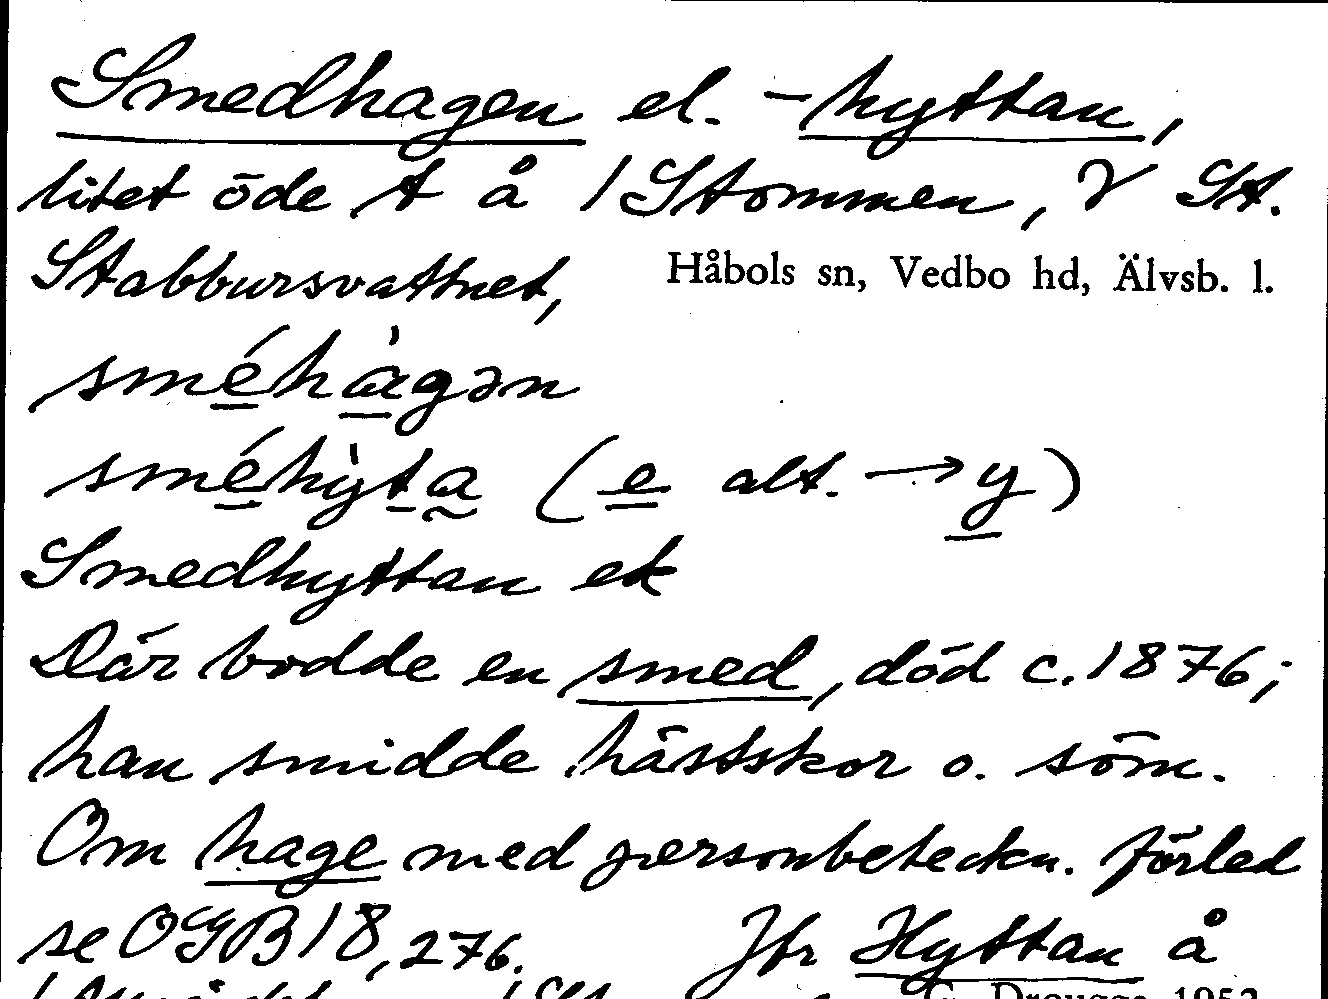 Smedhagen el. -hyttan,
litet öde t å 1 Stommen, V St.
Stabbursvattnet,
Håbols sn, Vedbo hd, Älvsb. l.
sméhàgən
sméhỳta (e alt. → y)
Smedhyttan ek
Där bodde en smed, död c. 1876;
han smidde hästskor o. söm.
Om hage med personbeteckn. förled
se OGB 18, 276. Jfr Hyttan å